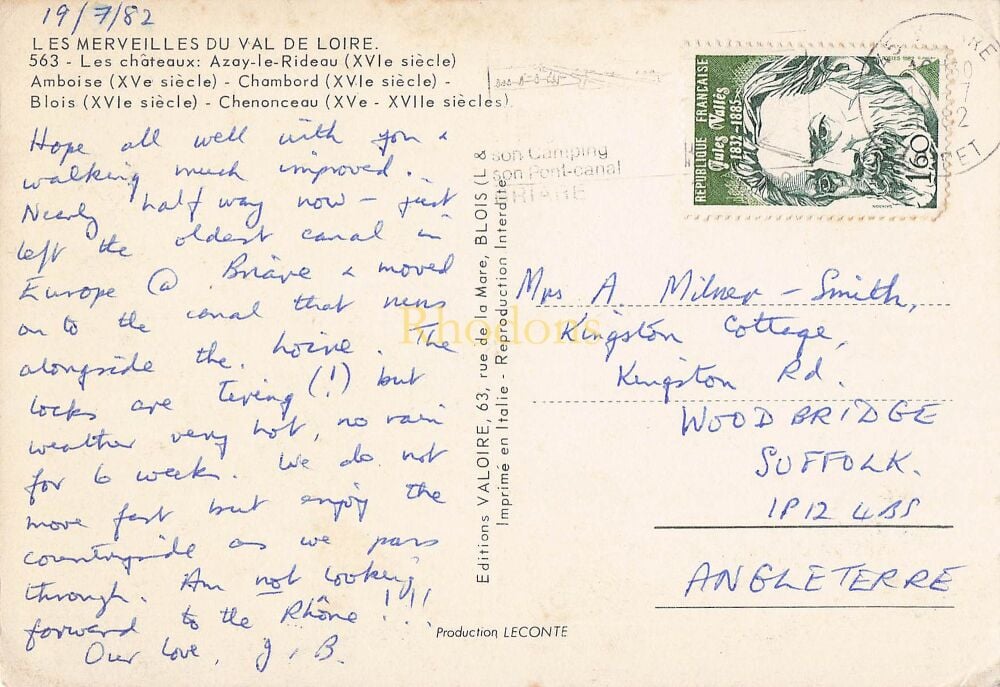 19/7/82
LES MERVEILLES DU VAL DE LOIRE.
563 - Les châteaux: Azay-le-Rideau (XVIe siècle)
Amboise (XVe siècle) - Chambord (XVIe siècle) -
Blois (XVIe siècle) - Chenonceau (XVe - XVIIe siècles).
Hope all well with you &
walking much improved.
Nearly half way now - just
left the oldest canal in
Europe @ Briare & moved
on to the canal that runs
alongside the Loire. The
locks are tiring (!) but
weather very hot, no rain
for 6 weeks. We do not
move fast but enjoy the
countryside as we pass
through. Am not looking
forward to the Rhône !!!
Our love, J, B.
Editions VALOIRE, 63, rue de la Mare, BLOIS (L &
Imprimé en Italie - Reproduction Interdite
Production LECONTE
son Camping
son Pont-canal
REPUBLIQUE FRANÇAISE
Jules Vallès
1832-1885
1,60
Mrs A. Milner - Smith,
Kingston Cottage,
Kingston Rd.
WOODBRIDGE
SUFFOLK.
IP12 4BS
ANGLETERRE
Rhodons